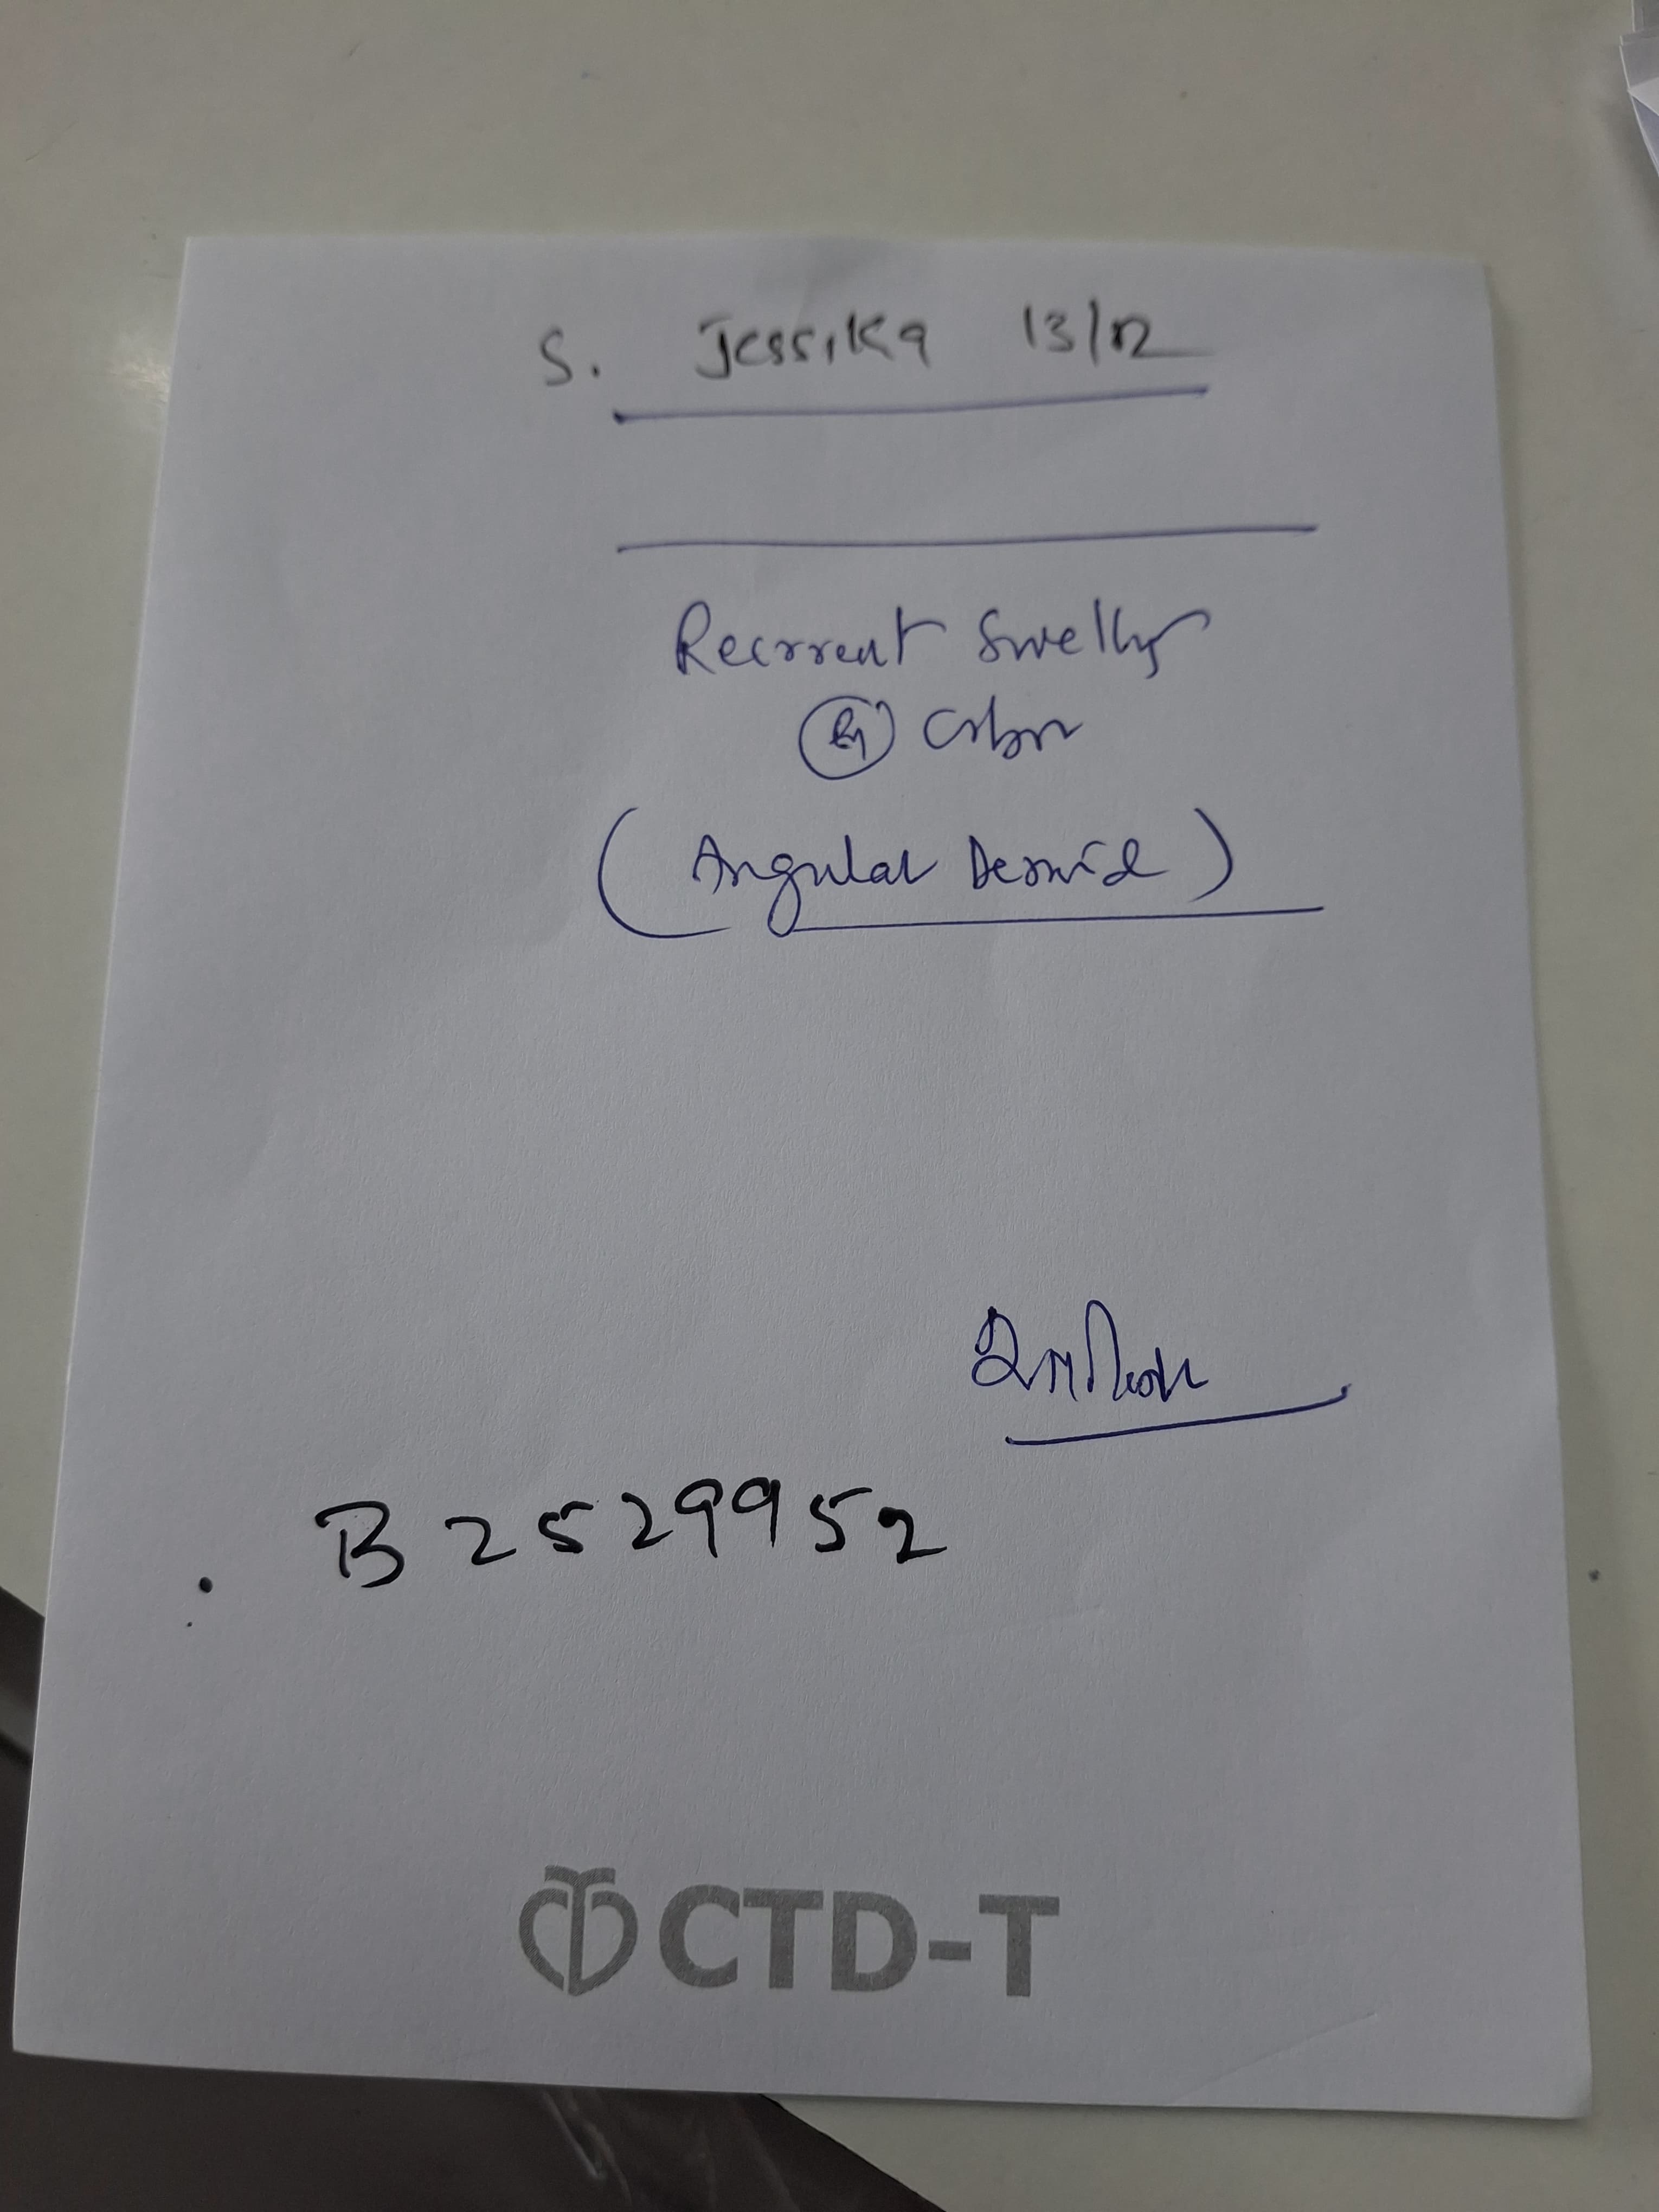 S. Jessika 13/12
Recrrent Swelling
(Angular Dermoid)
B2529952
CTD-T